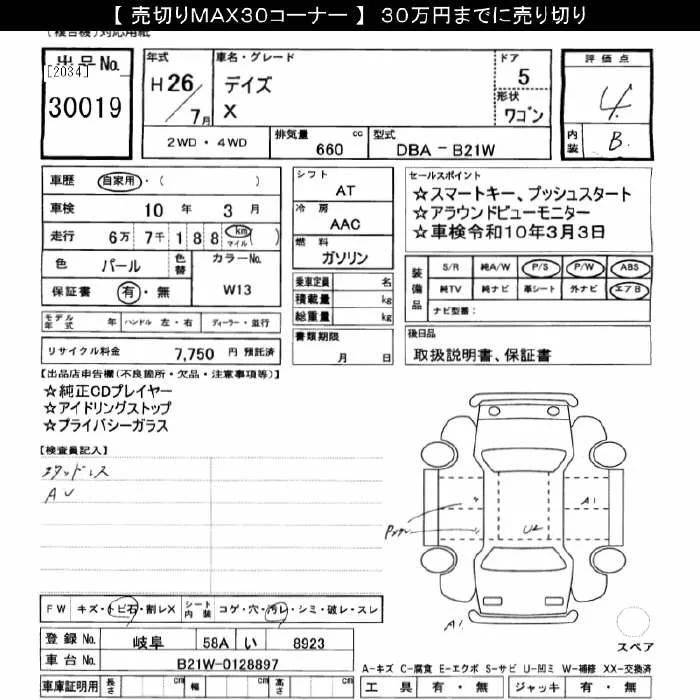 【 売切りMAX30コーナー 】 30万円までに売り切り
(複合機)対応用紙
出品No.
[2034]
30019
年式
H26/7月
車名・グレード
デイズ
X
ドア
5
形状
ワゴン
評価点
4
内装
B
2WD・4WD
排気量
660 cc
型式
DBA − B21W
車歴 自家用・( )
車検 10 年 3 月
走行 6万 7千 188 km マイル ( )
色 パール
色替
カラーNo.
W13
保証書 有・無
シフト
AT
冷房
AAC
燃料
ガソリン
乗車定員 名
積載量 kg
総重量 kg
セールスポイント
☆スマートキー、プッシュスタート
☆アラウンドビューモニター
☆車検令和10年3月3日
装備品
S/R 純A/W P/S P/W ABS
純TV 純ナビ 革シート 外ナビ エアB
ナビ型番:
モデル年式 年 ハンドル 左・右 ディーラー・並行
リサイクル料金 7,750 円 預託済
書類期限
月 日
後日品
取扱説明書、保証書
【出品店申告欄(不良箇所・欠品・注意事項等)】
☆純正CDプレイヤー
☆アイドリングストップ
☆プライバシーガラス
【検査員記入】
スタッドレス
AU
A1
U2
A1
FW キズ・トビ石・割レX シート内装 コゲ・穴・汚レ・シミ・破レ・スレ
登録No. 岐阜 58A い 8923
車台No. B21W-0128897
車庫証明用 長さ cm 幅 cm 高さ cm
スペア
A-キズ C-腐食 E-エクボ S-サビ U-凹ミ W-補修 XX-交換済
工具 有・無 ジャッキ 有・無